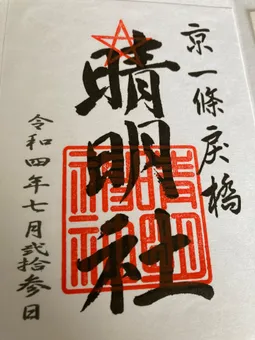 京一條戻橋
晴明社
晴明神社
令和四年七月弐拾参日